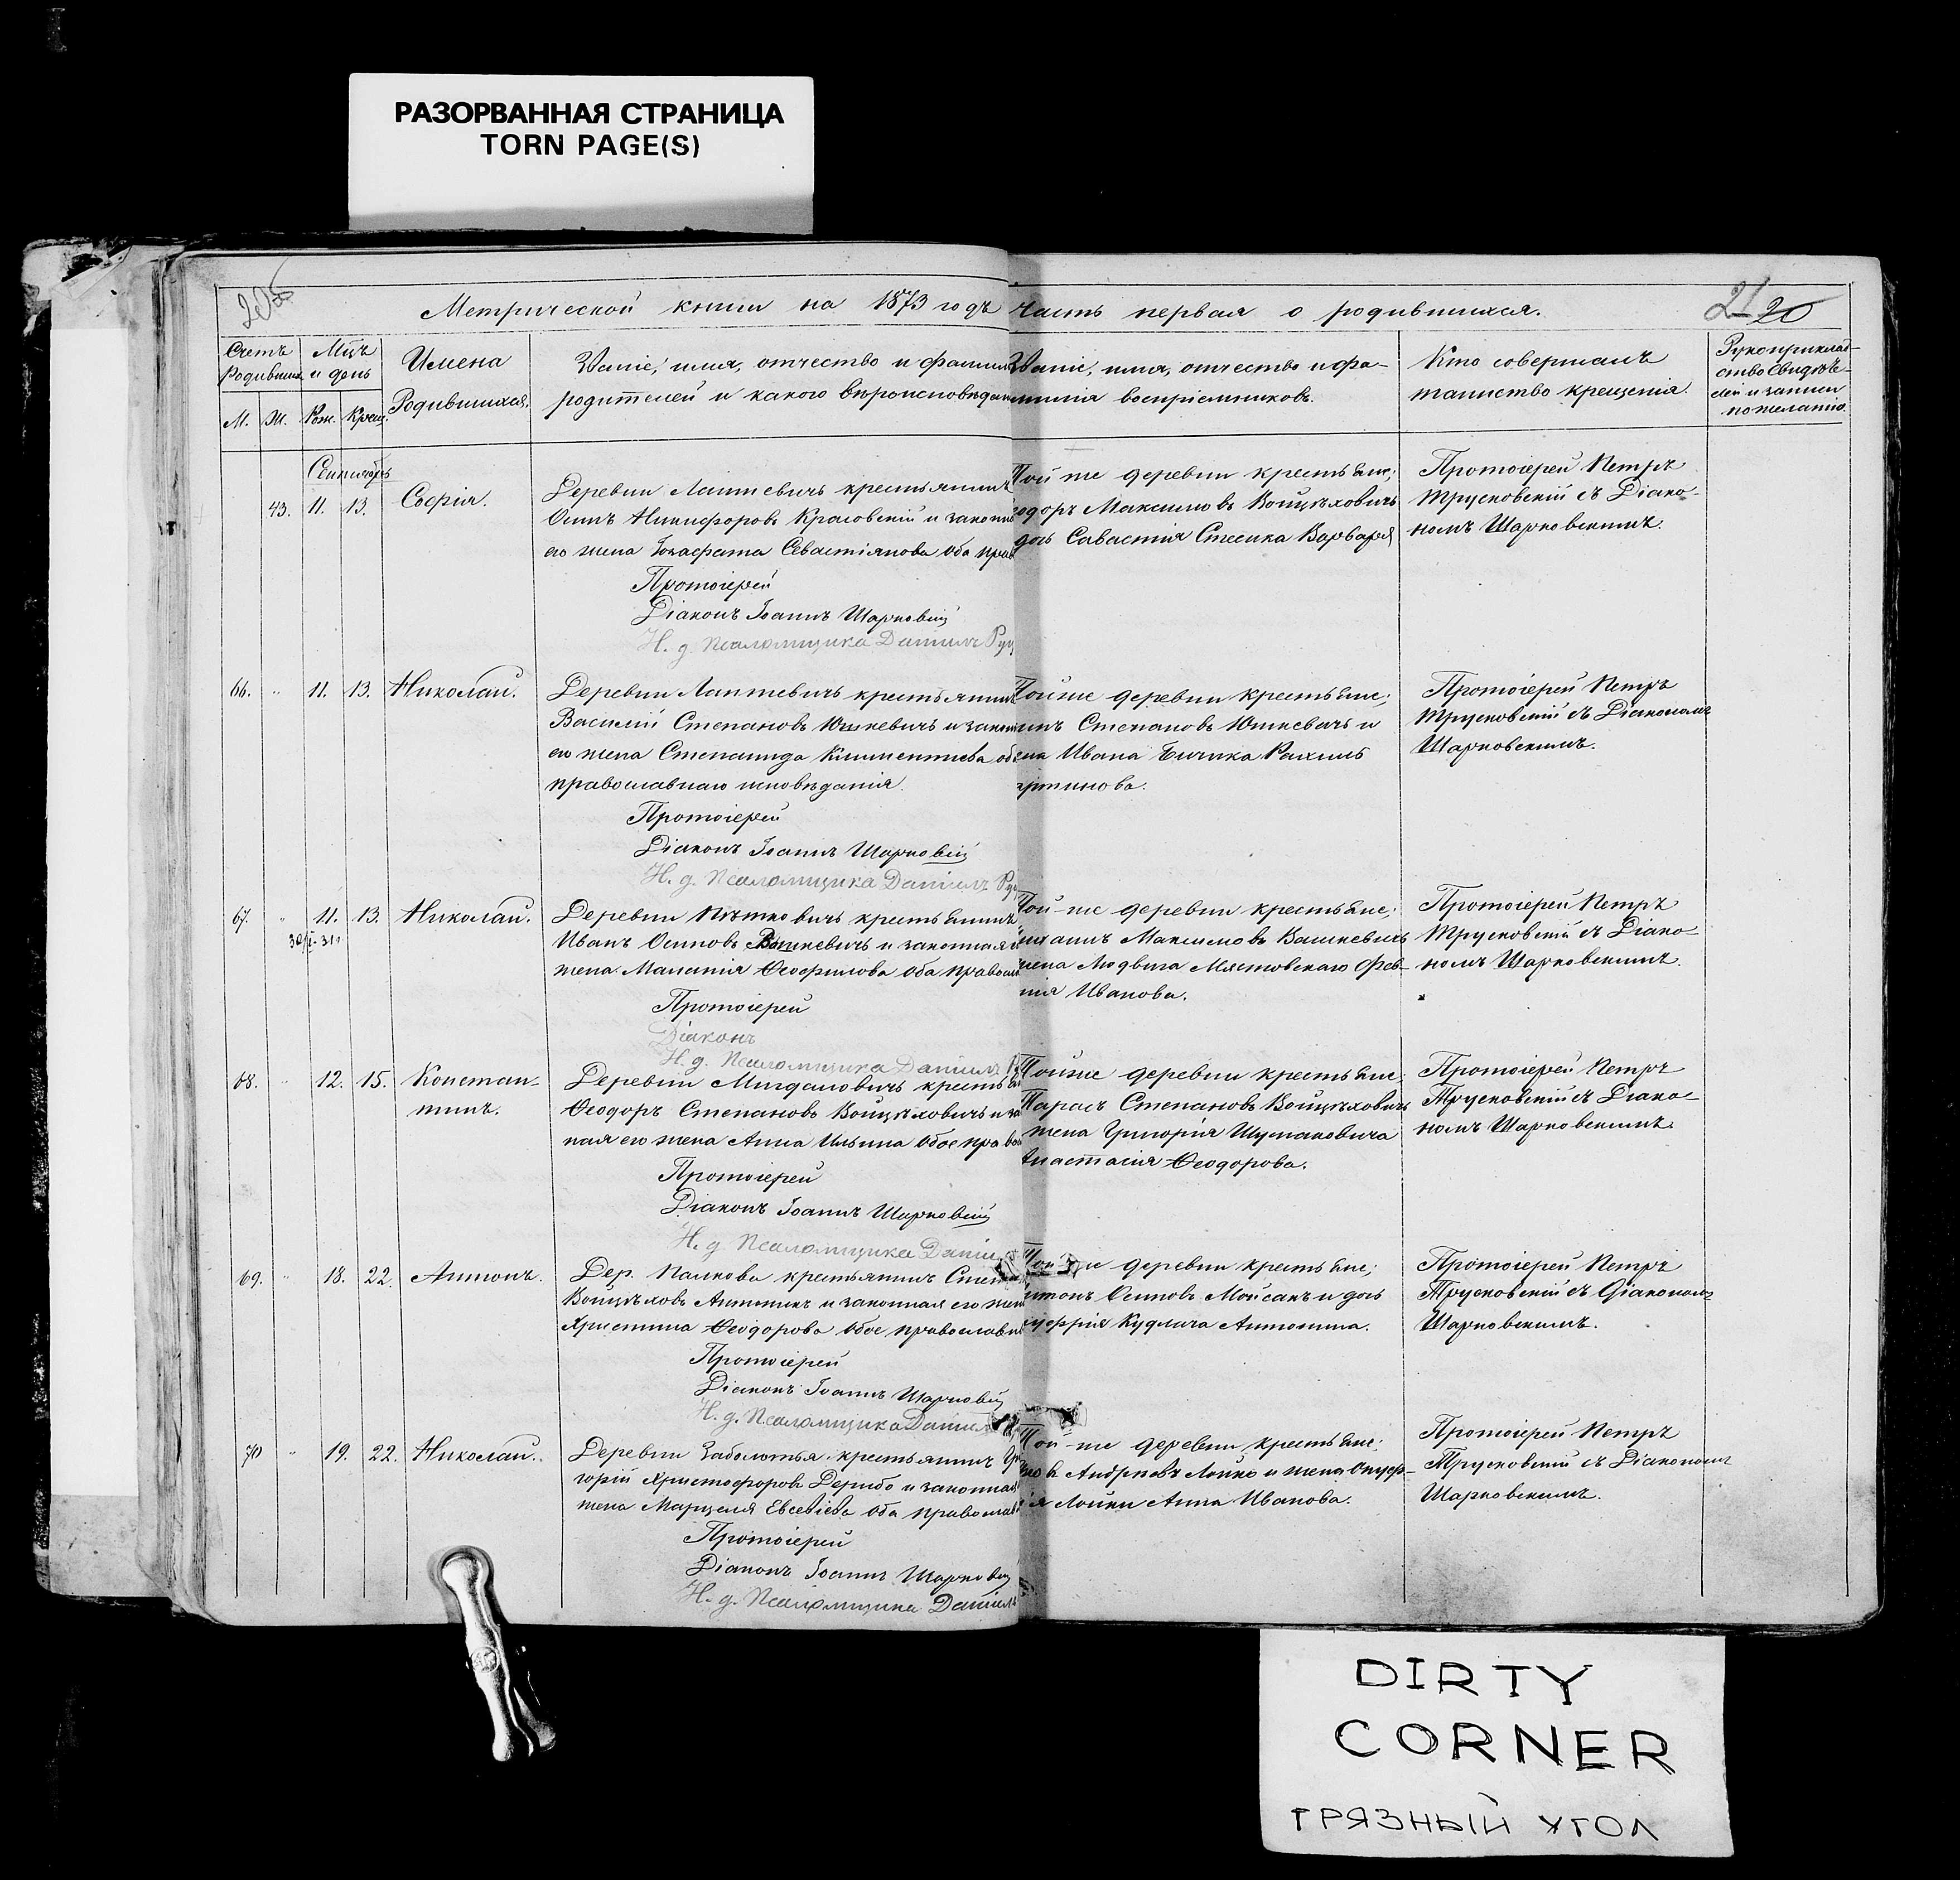 РАЗОРВАННАЯ СТРАНИЦА
TORN PAGE(S)
Метрической книги на 1873 годъ
часть первая о родившихся.
21 20
Счетъ Родившихся
Мцъ и день
Имена Родившихся.
Званіе, имя, отчество и фамилі
родителей и какого вѣроисповѣдан
М. Ж. Рож. Крещ.
Званіе, имя, отчество и фа-
милія воспріемниковъ.
Кто совершалъ
таинство крещенія.
Рукоприклад-
ство свидѣте-
лей и записи
по желанію.
Сентябрь
43. 11. 13. Софія.
Деревни Лаптевичъ крестьянинъ
Осипъ Никифоровъ Красовскій и законн
его жена Іозафата Севастіянова оба прав
Протоіерей
Діаконъ Іоаннъ Шарковскій
Н. д. Псаломщика Даніилъ
Той же деревни крестьяне;
одоръ Максимовъ Войцѣховичъ
дочь Савастія Стесика Варвара
Протоіерей Петръ
Трусковскій съ Діако-
номъ Шарковскимъ.
66. " 11. 13. Николай.
Деревни Лаптевичъ крестьянинъ
Василій Степановъ Юшкевичъ и законн
его жена Степанида Климентіева об
православнаго исповѣданія.
Протоіерей
Діаконъ Іоаннъ Шарковскій
Н. д. Псаломщика Даніилъ
Тойже деревни крестьяне;
Степановъ Юшкевичъ и
ена Ивана Бичика Рахиль
артинова.
Протоіерей Петръ
Трусковскій съ Діакономъ
Шарковскимъ.
67. " 11. 13. Николай.
Деревни Пѣтковичъ крестьянинъ
Иванъ Осиповъ Вашкевичъ и законная е
жена Маланія Ѳеофилова оба правосл
Протоіерей
Діаконъ
Н. д. Псаломщика Даніилъ
Той-же деревни крестьяне;
Максимовъ Вашкевичъ
жена Людвига Мястовскаго Фев-
нія Иванова.
Протоіерей Петръ
Трусковскій съ Діако-
номъ Шарковскимъ.
68. " 12. 15. Констан-
тинъ.
Деревни Мигдаловичъ крестьян
Ѳеодоръ Степановъ Войцѣховичъ и за
ная его жена Анна Ильина обое прав
Протоіерей
Діаконъ Іоаннъ Шарковскій
Н. д. Псаломщика Даніи
Тойже деревни крестьяне
Тарасъ Степановъ Войцѣховичъ
жена Григорія Шумаковича
Анастасія Ѳеодорова.
Протоіерей Петръ
Трусковскій съ Діако-
номъ Шарковскимъ.
69. " 18. 22. Антонъ.
Дер. Палкова крестьянинъ Степа
Войцѣховъ Антоникъ и законная его жен
Христина Ѳеодорова обое православн
Протоіерей
Діаконъ Іоаннъ Шарковскій
Н. д. Псаломщика Даніил
Той же деревни крестьяне;
нтонъ Осиповъ Мойсакъ и дочь
нуфрія Кудлача Антонина.
Протоіерей Петръ
Трусковскій съ Діакономъ
Шарковскимъ.
70 " 19. 22. Николай.
Деревни Заболотья крестьянинъ Гри
горій Христофоровъ Дерибо и законная
жена Марцеля Евсевіева оба правосла
Протоіерей
Діаконъ Іоаннъ Шарковскій
Н. д. Псаломщика Даніилъ
Той-же деревни крестьяне:
Андреевъ Лойко и жена Онуф-
ія Лойки Анна Иванова.
Протоіерей Петръ
Трусковскій съ Діакономъ
Шарковскимъ.
DIRTY
CORNER
ГРЯЗНЫЙ УГОЛ